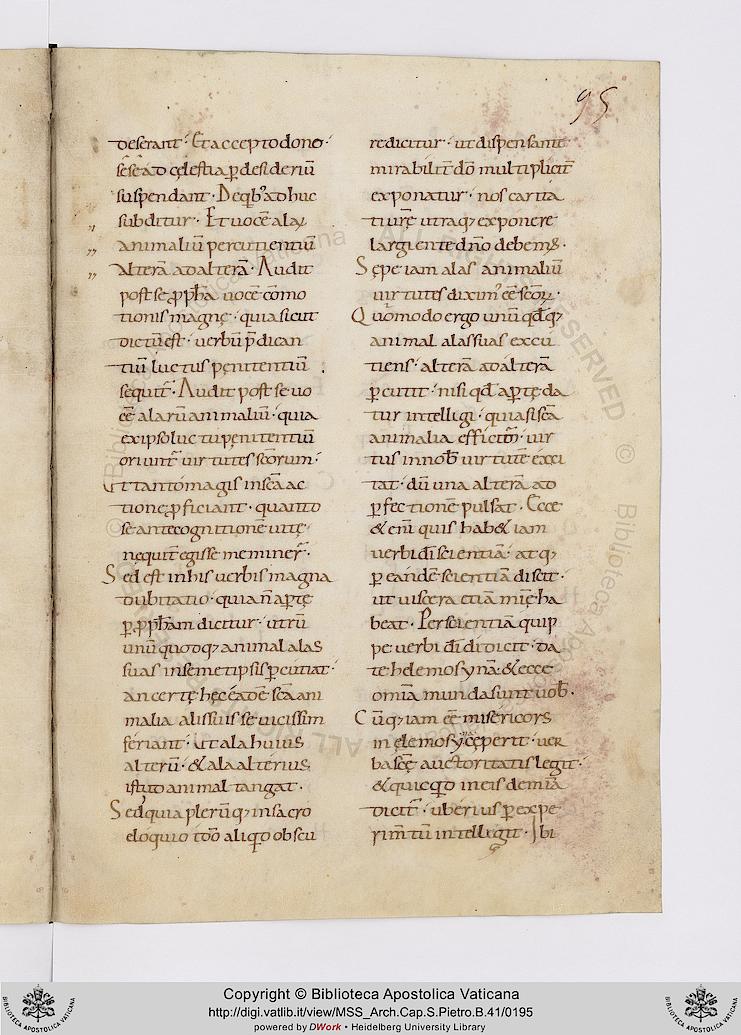 95
deserant · Et accepto dono ·
sese ad cęlestia p̱ desideriū
suspendant · De qb; adhuc
subditur · Et uocē alaꝝ
animaliū percutientiū
alterā ad alterā · Audit
post se ꝓpħa uocē cōmo
tionis magnę · quia sicut
dictū est · uerbū p̄dican
tiū luctus pęnitentiū
sequit̄ · Audit post se uo
cē alarū animaliū · quia
ex ipso luctu pęnitentiū
oriunt̄ uirtutes scōrum ·
Ut tanto magis in scā ac
tione ꝓficiant · quanto
se ante cognitionē uitę
nequit̄ egisse meminer̄ ·
Sed est in his uerbis magna
dubitatio · quia n̄ ap̱tę
p̱ ꝓpħam dicitur · utrū
unū quodq; animal alas
suas in semetipsis p̱cutiat ·
an certę hęc eadē scā ani
malia alis suis se uicissim
feriant · ut ala huius
alterū · & ala alterius
istud animal tangat ·
Sed quia plerūq; in sacro
eloquio ido aliqd obscu
re dicitur · ut dispensante
mirabilit̄ dō multiplicit̄
exponatur · nos carita
ti urę utraq; exponere
largiente dn̄o debem; ·
Sępe iam alas animaliū
uirtutes dixim; cē scōꝝ ·
Quomodo ergo unū qdq;
animal alas suas excu
tiens · alterā ad alterā
p̱cutit · nisi qd ap̱te da
tur intellegi · quia si scā
animalia efficim̄ · uir
tus in nob̄ uirtutē exci
tat · dū una alterā ad
p̱fectionē pulsat · Ecce
& eni quis hab& iam
uerbi dī scientiā · atq;
p̱ eandē scientiā discit ·
ut uiscera etiā mīę ha
beat · Per scientiā quip
pe uerbi dī didicit · da
te helemosynā · & ecce
omīa munda sunt uob̄ ·
Cūq; iam cē misericors
in ęlemosyna cęperit · uer
ba scę auctoritatis legit ·
& quicqd in eis de mīa
dicit̄ · uberius p̱ expe
rim̄tū intellegit · Ibi
Copyright © Biblioteca Apostolica Vaticana
http://digi.vatlib.it/view/MSS_Arch.Cap.S.Pietro.B.41/0195
powered by DWork • Heidelberg University Library